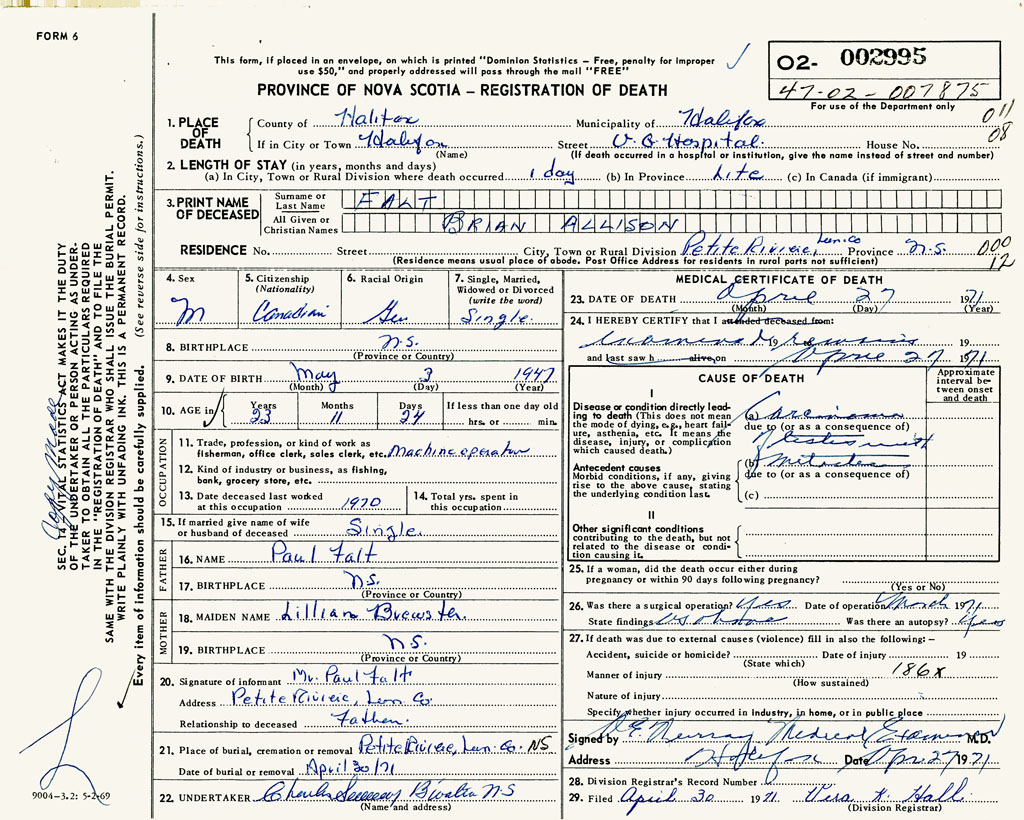 FORM 6
This form, if placed in an envelope, on which is printed "Dominion Statistics – Free, penalty for improper
use $50," and properly addressed will pass through the mail "FREE"
PROVINCE OF NOVA SCOTIA – REGISTRATION OF DEATH
O2- 002995
47-02-007875
For use of the Department only
011
08
1. PLACE OF DEATH
County of Halifax Municipality of Halifax
If in City or Town Halifax Street V. G. Hospital House No.
(Name) (If death occurred in a hospital or institution, give the name instead of street and number)
2. LENGTH OF STAY (in years, months and days)
(a) In City, Town or Rural Division where death occurred 1 day (b) In Province Life (c) In Canada (if immigrant)
3. PRINT NAME OF DECEASED
Surname or Last Name FALT
All Given or Christian Names BRIAN ALLISON
RESIDENCE No. Street City, Town or Rural Division Petite Riviere, Lun. Co Province N.S.
(Residence means usual place of abode. Post Office Address for residents in rural parts not sufficient)
000
12
4. Sex
M
5. Citizenship
(Nationality)
Canadian
6. Racial Origin
Ger
7. Single, Married, Widowed or Divorced
(write the word)
Single.
8. BIRTHPLACE N.S.
(Province or Country)
9. DATE OF BIRTH May 3 1947
(Month) (Day) (Year)
10. AGE in Years Months Days If less than one day old
23 11 24 hrs. or min.
OCCUPATION
11. Trade, profession, or kind of work as
fisherman, office clerk, sales clerk, etc. Machine operator
12. Kind of industry or business, as fishing,
bank, grocery store, etc.
13. Date deceased last worked
at this occupation 1970
14. Total yrs. spent in
this occupation
15. If married give name of wife
or husband of deceased Single.
FATHER
16. NAME Paul Falt
17. BIRTHPLACE N.S.
(Province or Country)
MOTHER
18. MAIDEN NAME Lillian Brewster
19. BIRTHPLACE N.S.
(Province or Country)
20. Signature of informant Mr. Paul Falt
Address Petite Riviere, Lun. Co.
Relationship to deceased Father.
21. Place of burial, cremation or removal Petite Riviere, Lun. Co. NS
Date of burial or removal April 30/71
22. UNDERTAKER Charles N.S
(Name and address)
MEDICAL CERTIFICATE OF DEATH
23. DATE OF DEATH April 27 1971
(Month) (Day) (Year)
24. I HEREBY CERTIFY that I attended deceased from:
Examined 19 remains
and last saw h alive on April 27 1971
CAUSE OF DEATH
Approximate interval between onset and death
I
Disease or condition directly leading to death (This does not mean the mode of dying, e.g., heart failure, asthenia, etc. It means the disease, injury, or complication which caused death.)
(a) Carcinoma
due to (or as a consequence of)
of testes with
Antecedent causes
Morbid conditions, if any, giving rise to the above cause, stating the underlying condition last.
(b)
due to (or as a consequence of)
(c)
II
Other significant conditions contributing to the death, but not related to the disease or condition causing it.
25. If a woman, did the death occur either during
pregnancy or within 90 days following pregnancy?
(Yes or No)
26. Was there a surgical operation? Yes Date of operation March 1971
State findings as above Was there an autopsy? Yes
27. If death was due to external causes (violence) fill in also the following:–
Accident, suicide or homicide? Date of injury 19
(State which)
Manner of injury 186X
(How sustained)
Nature of injury
Specify whether injury occurred in industry, in home, or in public place
Signed by E. Murray Medical Examiner M.D.
Address Halifax Date Apr 27 1971
28. Division Registrar's Record Number
29. Filed April 30 1971 Vera K. Hall.
(Division Registrar)
Copy Made
SEC. 14 VITAL STATISTICS ACT MAKES IT THE DUTY
OF THE UNDERTAKER OR PERSON ACTING AS UNDER-
TAKER TO OBTAIN ALL THE PARTICULARS REQUIRED
IN THE "REGISTRATION OF DEATH" AND TO FILE THE
SAME WITH THE DIVISION REGISTRAR WHO SHALL ISSUE THE BURIAL PERMIT.
WRITE PLAINLY WITH UNFADING INK. THIS IS A PERMANENT RECORD.
Every item of information should be carefully supplied. (See reverse side for instructions.)
9004-3.2: 5-2-69